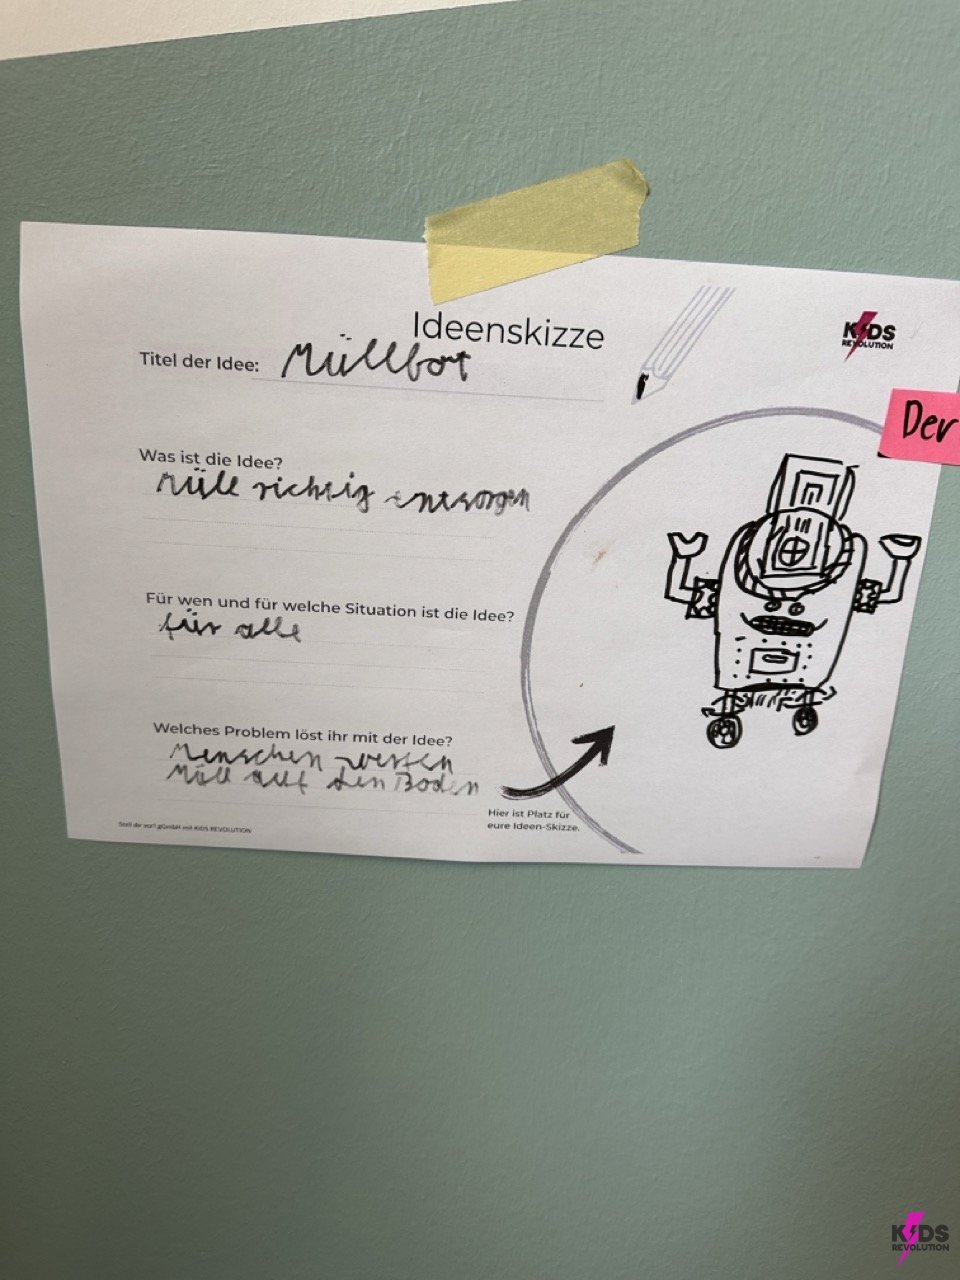 Ideenskizze
KiDS
REVOLUTION
Titel der Idee: Müllbort
Der
Was ist die Idee?
Müll richtig entsorgen
Für wen und für welche Situation ist die Idee?
für alle
Welches Problem löst ihr mit der Idee?
Menschen werfen
Müll auf den Boden
Hier ist Platz für
eure Ideen-Skizze.
Stell dir vor! gGmbH mit KiDS REVOLUTION
KiDS
REVOLUTION